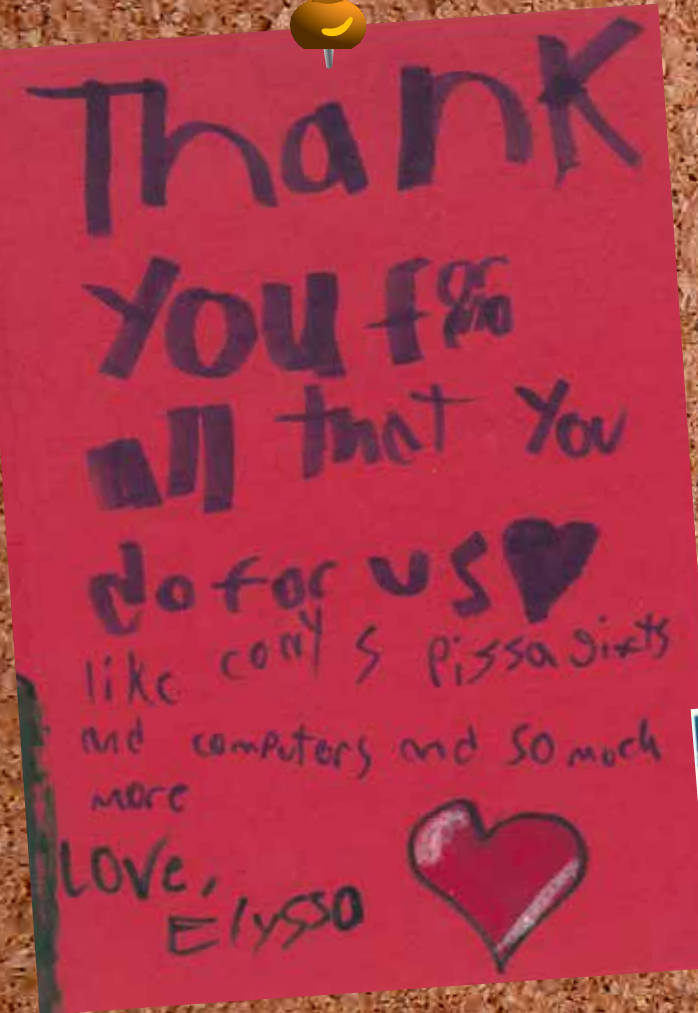 Thank
you for
all that you
do for us
like cony s pissa gifts
and computers and so much
more
Love,
Elyssa